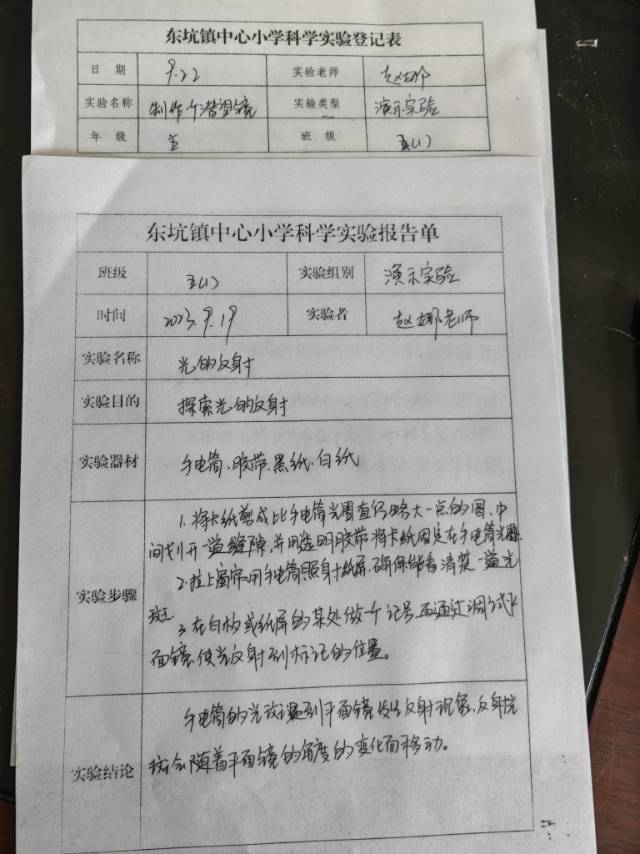 东坑镇中心小学科学实验登记表
日 期 9.22 实验老师 赵娜
实验名称 制作个潜望镜 实验类型 演示实验
年 级 五 班 级 五(1)
东坑镇中心小学科学实验报告单
班级 五(1) 实验组别 演示实验
时间 2023.9.19 实验者 赵娜老师
实验名称 光的反射
实验目的 探索光的反射
实验器材 手电筒、胶带、黑纸、白纸
实验步骤
1. 将卡纸剪成比手电筒光圈直径略大一点的圆,中
间划开一道缝隙,并用透明胶带将卡纸固定在手电筒光圈
2. 拉上窗帘,用手电筒照射纸屏,确保能看清楚一道光
斑。
3. 在白板或纸屏的某处做一个记号,再通过调试平
面镜,使光反射到标记的位置。
实验结论
手电筒的光 遇到平面镜发生反射现象,反射光
线会随着平面镜的角度的变化而移动。